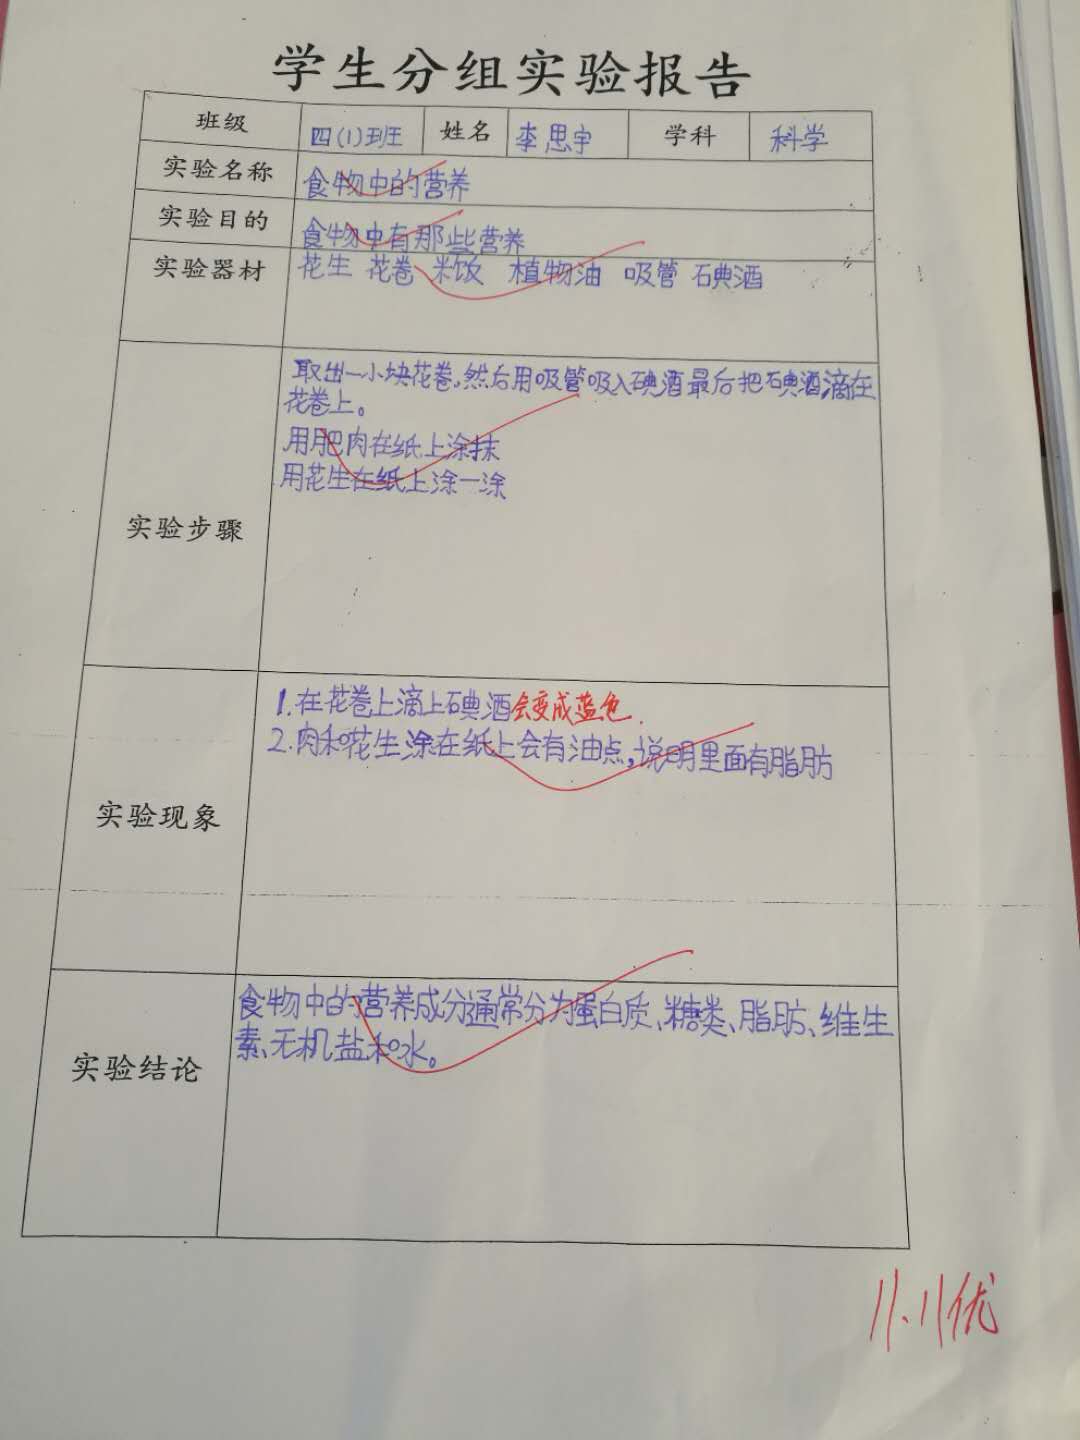 学生分组实验报告
班级 四(1)班 姓名 李思宇 学科 科学
实验名称 食物中的营养
实验目的 食物中有那些营养
实验器材 花生 花卷 米饭 植物油 吸管 碘酒
取出一小块花卷,然后用吸管吸入碘酒最后把碘酒滴在
花卷上。
用肥肉在纸上涂抹
用花生在纸上涂一涂
实验步骤
1.在花卷上滴上碘酒会变成蓝色.
2.肉和花生涂在纸上会有油点,说明里面有脂肪
实验现象
食物中的营养成分通常分为蛋白质、糖类、脂肪、维生
素、无机盐和水。
实验结论
11.11优